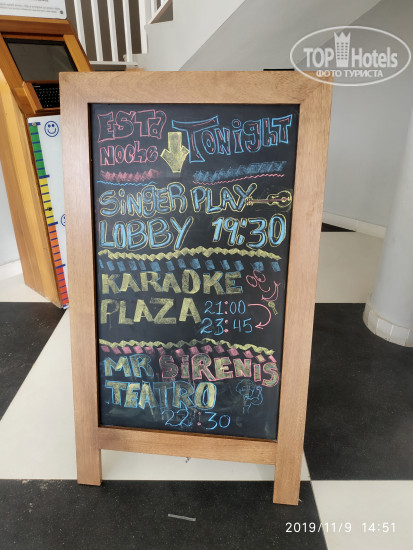 TOPHotels
ФОТО ТУРИСТА
ESTA NOCHE
TONIGHT
SINGER PLAY
LOBBY 19:30
KARAOKE
PLAZA 21:00
23:45
MR SIRENIS
TEATRO
22:30
2019/11/9 14:51